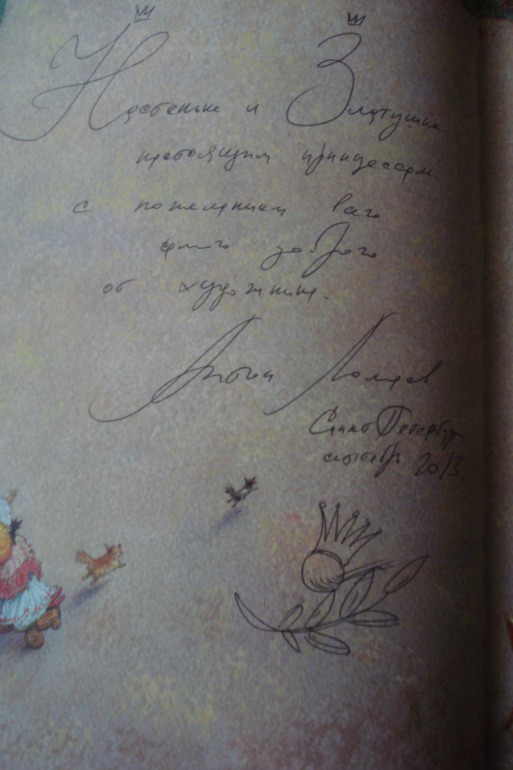 Настеньке и Златушке
настоящим принцессам
с пожеланием всего
самого доброго
от художника.
Антон Ломаев
Санкт Петербург
октябрь 2013